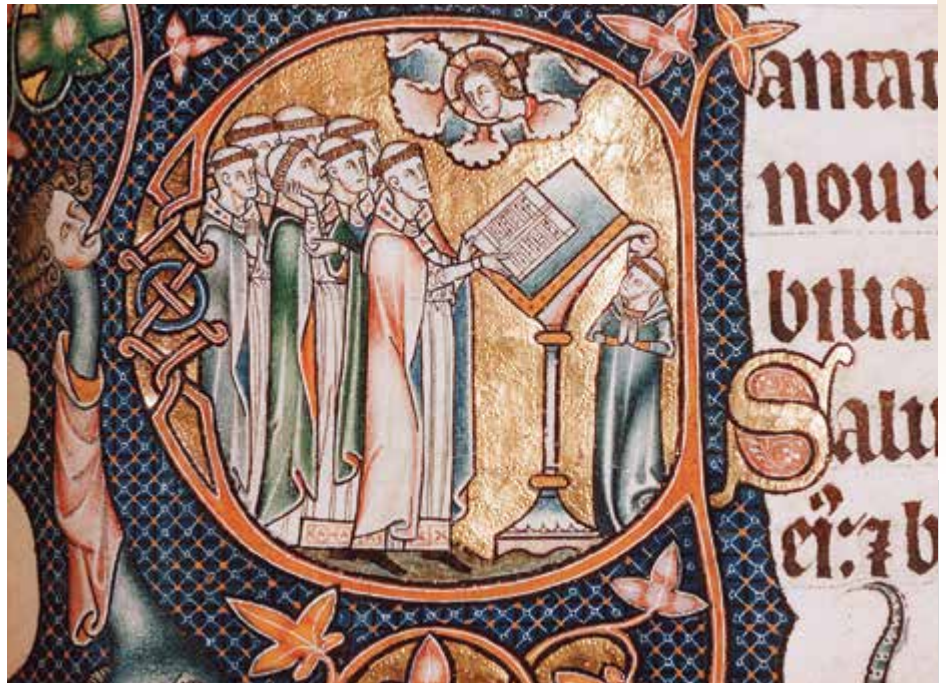 Cantat
nouu
bilia
Salu
ei᷒: ⁊ b